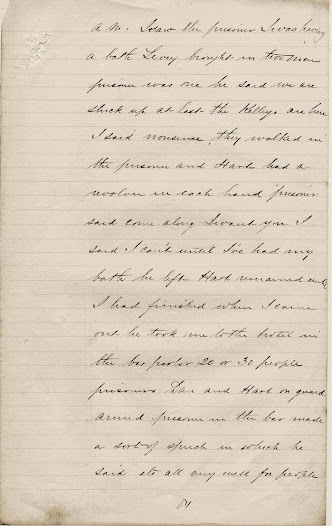 a m. I saw the prisoner I was having
a bath Levey brought in two men
prisoner was one he said we are
stuck up at last the Kellys are here
I said nonsense, they walked in
the prisoner and Hart had a
revolver in each hand prisoner
said come along I want you I
said I can't until I've had my
bath he left Hart remained until
I had finished when I came
out he took me to the hotel in
the bar parlor 20 or 30 people
prisoners Dan and Hart on guard
armed. prisoner in the bar made
a sort of speech in which he
said its all very well for people